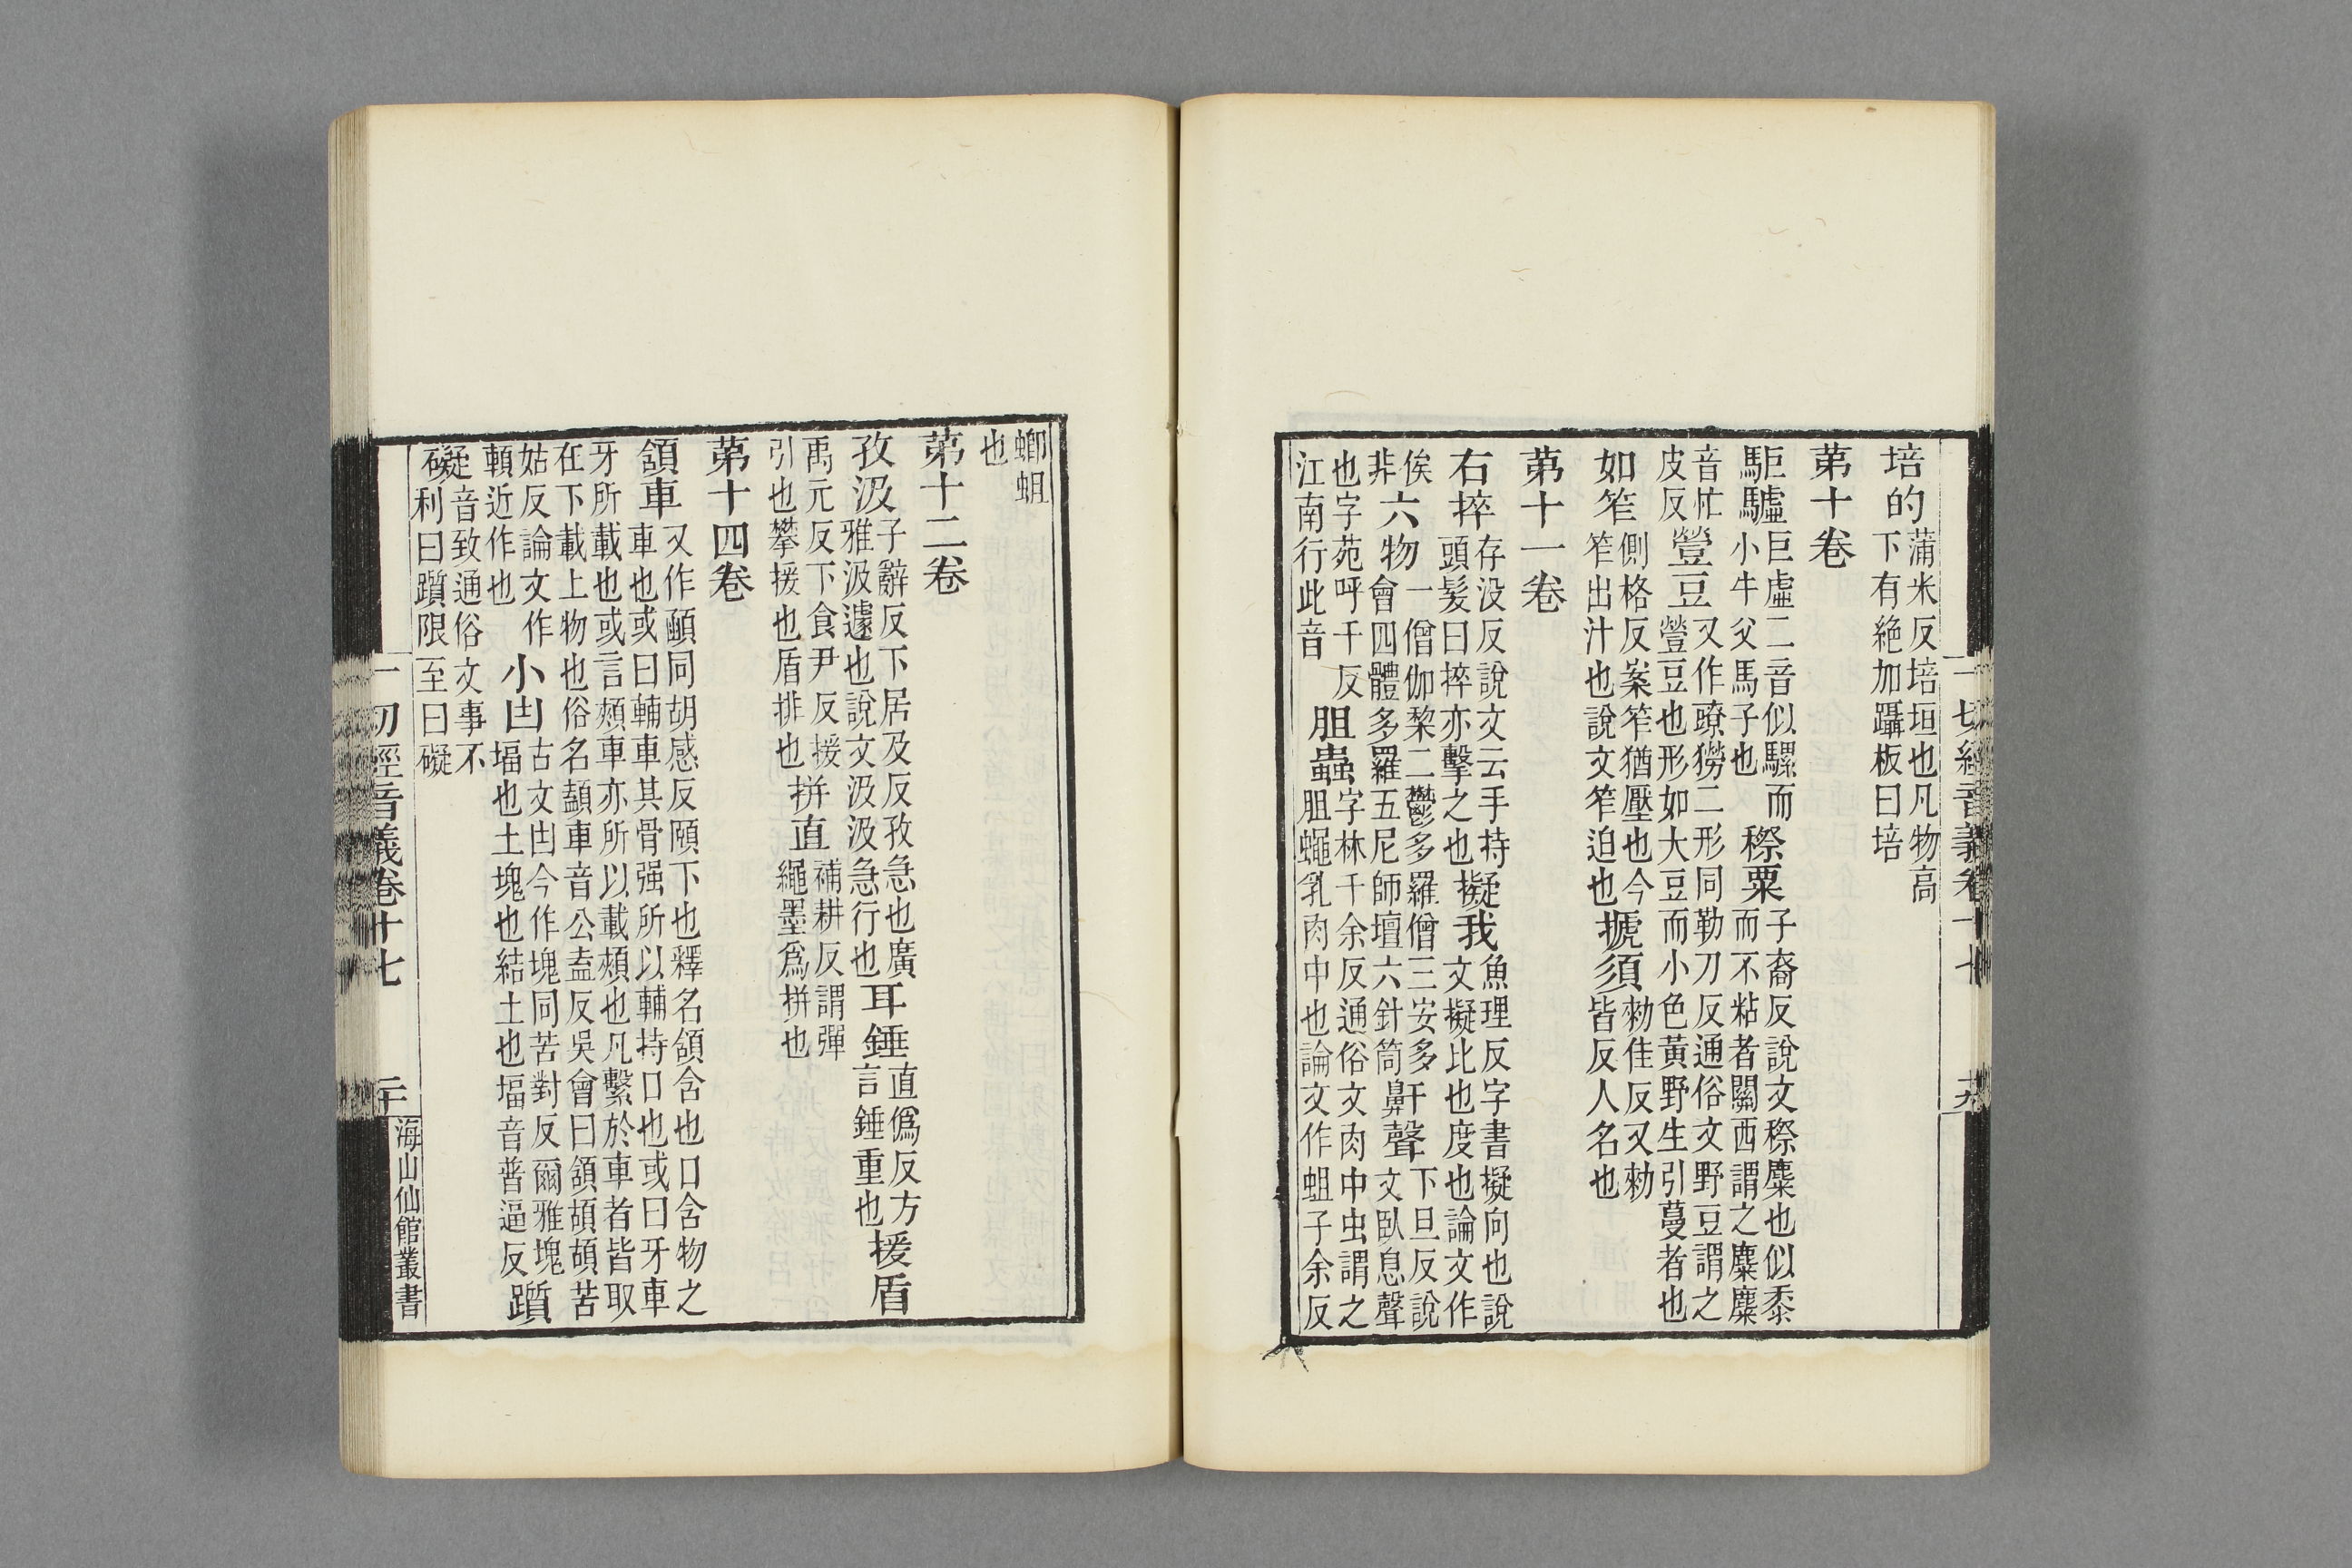 一切經音義卷十七
十九
培的蒲米反培垣也凡物高
下有絶加躡板曰培
第十卷
駏驉巨虛二音似騾而
小牛父馬子也
穄粟子裔反説文穄䵚也似黍
而不粘者關西謂之䵚䵚
音忙
皮反
豋豆又作𧰒𤛮二形同勒刀反通俗文野豆謂之
豋豆也形如大豆而小色黃野生引蔓者也
如笮側格反案笮猶壓也今
笮出汁也說文笮迫也
搋須勑佳反又勑
皆反人名也
第十一卷
右捽存没反說文云手持
頭髮曰捽亦擊之也
擬我魚理反字書擬向也說
文擬比也度也論文作
俟
非
六物一僧伽黎二鬱多羅僧三安多
會四體多羅五尼師壇六針筒
鼾聲下旦反說
文臥息聲
也字苑呼干反
江南行此音
胆蟲字林千余反通俗文肉中虫謂之
胆蠅乳肉中也論文作蛆子余反
蝍蛆
也
第十二卷
孜汲子辭反下居及反孜急也廣
雅汲遽也說文汲汲急行也
耳錘直僞反方
言錘重也
援盾
禹元反下食尹反援
引也攀援也盾排也
拼直補耕反謂彈
繩墨爲拼也
第十四卷
頷車又作顄同胡感反頤下也釋名頷含也口含物之
車也或曰輔車其骨强所以輔持口也或曰牙車
牙所載也或言頰車亦所以載頰也凡繫於車者皆取
在下載上物也俗名䫴車音公盍反吳會曰頷頡頡苦
姑反論文作
頼近作也
小凷古文凷今作塊同苦對反爾雅塊
堛也土塊也結土也堛音普逼反
躓
礙音致通俗文事不
利曰躓限至曰礙
一切經音義卷十七
二十
海山仙館叢書